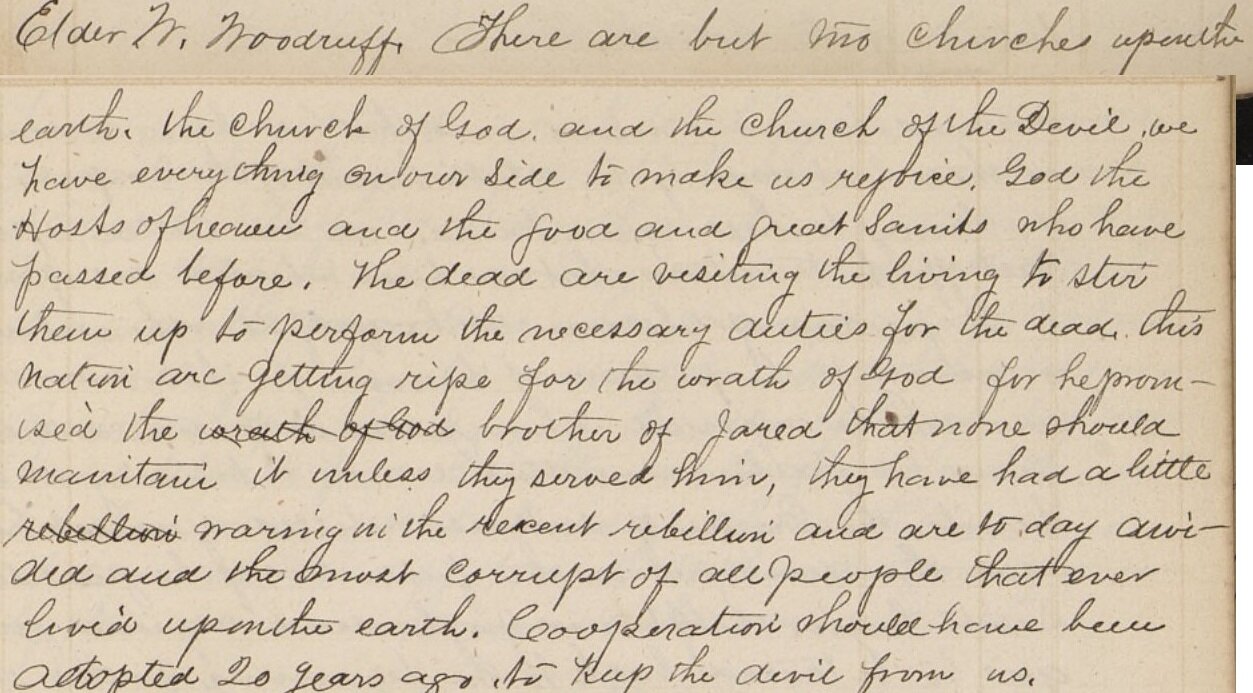 Elder W. Woodruff. There are but two churches upon the
earth. the church of God. and the church of the Devil, we
have everything on our side to make us rejoice. God the
Hosts of heaven and the good and great Saints who have
passed before. The dead are visiting the living to stir
them up to perform the necessary duties for the dead. this
nation are getting ripe for the wrath of God for he prom-
ised the wrath of God brother of Jared that none should
maintain it unless they served him, they have had a little
rebellion warning in the recent rebellion and are to day divi-
ded and the most corrupt of all people that ever
lived upon the earth. Cooperation should have been
adopted 20 years ago, to keep the devil from us.